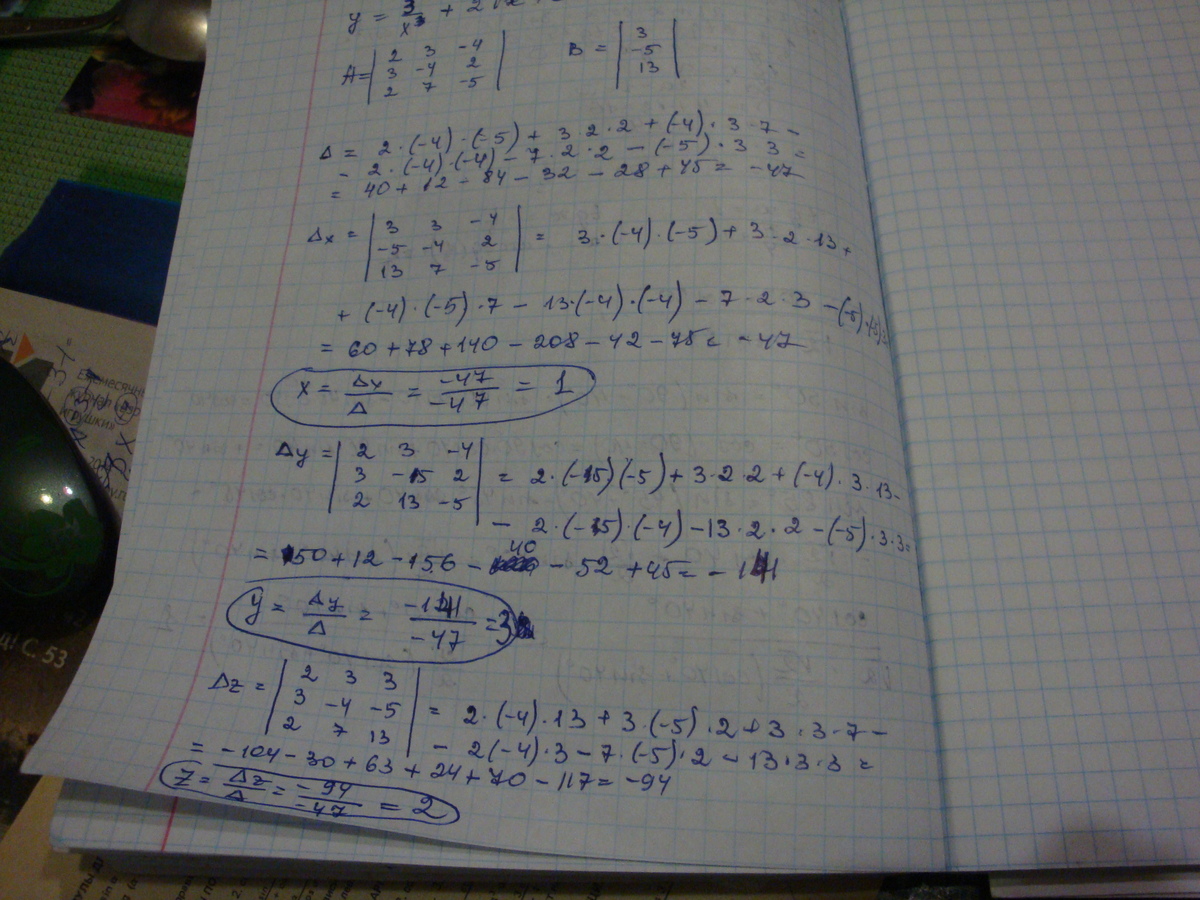 y = 3/x³ + 2
A = | 2 3 -4 | B = | 3 |
| 3 -4 2 | | -5 |
| 2 7 -5 | | 13 |
Δ = 2·(-4)·(-5) + 3·2·2 + (-4)·3·7 -
- 2·(-4)·(-4) - 7·2·2 - (-5)·3·3 =
= 40 + 12 - 84 - 32 - 28 + 45 = -47
Δx = | 3 3 -4 | = 3·(-4)·(-5) + 3·2·13 +
| -5 -4 2 |
| 13 7 -5 |
+ (-4)·(-5)·7 - 13·(-4)·(-4) - 7·2·3 - (-5)·(-5)·3
= 60 + 78 + 140 - 208 - 42 - 75 = -47
x = Δx/Δ = -47/-47 = 1
Δy = | 2 3 -4 | = 2·(-15)(-5) + 3·2·2 + (-4)·3·13 -
| 3 -15 2 |
| 2 13 -5 |
- 2·(-15)·(-4) - 13·2·2 - (-5)·3·3 =
= 150 + 12 - 156 - 40 - 52 + 45 = -141
y = Δy/Δ = -141/-47 = 3
Δz = | 2 3 3 | = 2·(-4)·13 + 3·(-5)·2 + 3·3·7 -
| 3 -4 -5 |
| 2 7 13 |
- 2(-4)·3 - 7·(-5)·2 - 13·3·3 =
= -104 - 30 + 63 + 24 + 70 - 117 = -94
z = Δz/Δ = -94/-47 = 2
С. 53